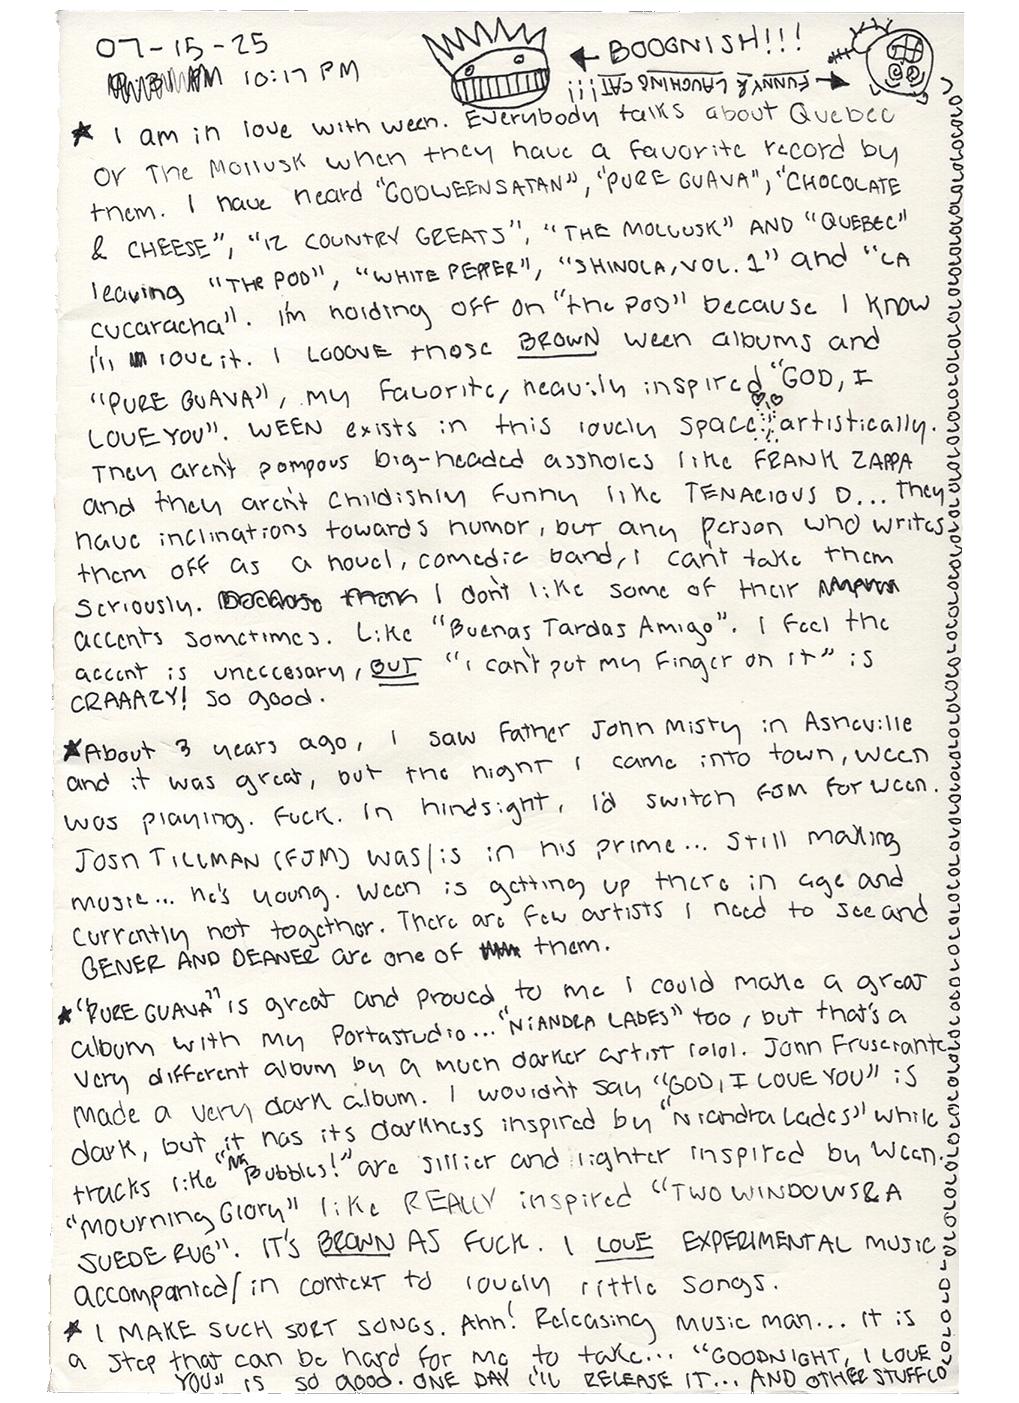 07-15-25
BOOGNISH!!!
10:17 PM
FUNNY & LAUGHING CAT!!!
★ I am in love with ween. Everybody talks about Quebec
or The Mollusk when they have a favorite record by
them. I have heard "GODWEENSATAN", "PURE GUAVA", "CHOCOLATE
& CHEESE", "12 COUNTRY GREATS", "THE MOLLUSK" AND "QUEBEC"
leaving "THE POD", "WHITE PEPPER", "SHINOLA, VOL. 1" and "LA
cucaracha". I'm holding off on "the POD" because I know
I'll love it. I LOOOVE those BROWN ween albums and
"PURE GUAVA", my favorite, heavily inspired "GOD, I
LOVE YOU". WEEN exists in this lovely space artistically.
They aren't pompous big-headed assholes like FRANK ZAPPA
and they aren't childishly funny like TENACIOUS D... they
have inclinations towards humor, but any person who writes
them off as a novel, comedic band, I can't take them
seriously. I don't like some of their
accents sometimes. Like "Buenas Tardas Amigo". I feel the
accent is uneccesary, BUT "I can't put my finger on it" is
CRAAAZY! So good.
★ About 3 years ago, I saw Father John Misty in Asheville
and it was great, but the night I came into town, ween
was playing. Fuck. In hindsight, I'd switch FJM for ween.
JOSH TILLMAN (FJM) was/is in his prime... Still making
music... he's young. Ween is getting up there in age and
currently not together. There are few artists I need to see and
GENER AND DEANER are one of them.
★ "PURE GUAVA" is great and proved to me I could make a great
album with my Portastudio... "NIANDRA LADES" too, but that's a
very different album by a much darker artist lolol. John Frusciante
made a very dark album. I wouldn't say "GOD, I LOVE YOU" is
dark, but it has its darkness inspired by "Niandra Lades" while
tracks like "Mr Bubbles!" are sillier and lighter inspired by Ween.
"Mourning Glory" like REALLY inspired "TWO WINDOWS & A
SUEDE RUG". IT'S BROWN AS FUCK. I LOVE EXPERIMENTAL MUSIC
accompanied/in context to lovely little songs.
★ I MAKE SUCH SORT SONGS. Ahh! Releasing music man... it is
a step that can be hard for me to take... "GOODNIGHT, I LOVE
YOU" is so good. ONE DAY I'LL RELEASE IT... AND OTHER STUFF